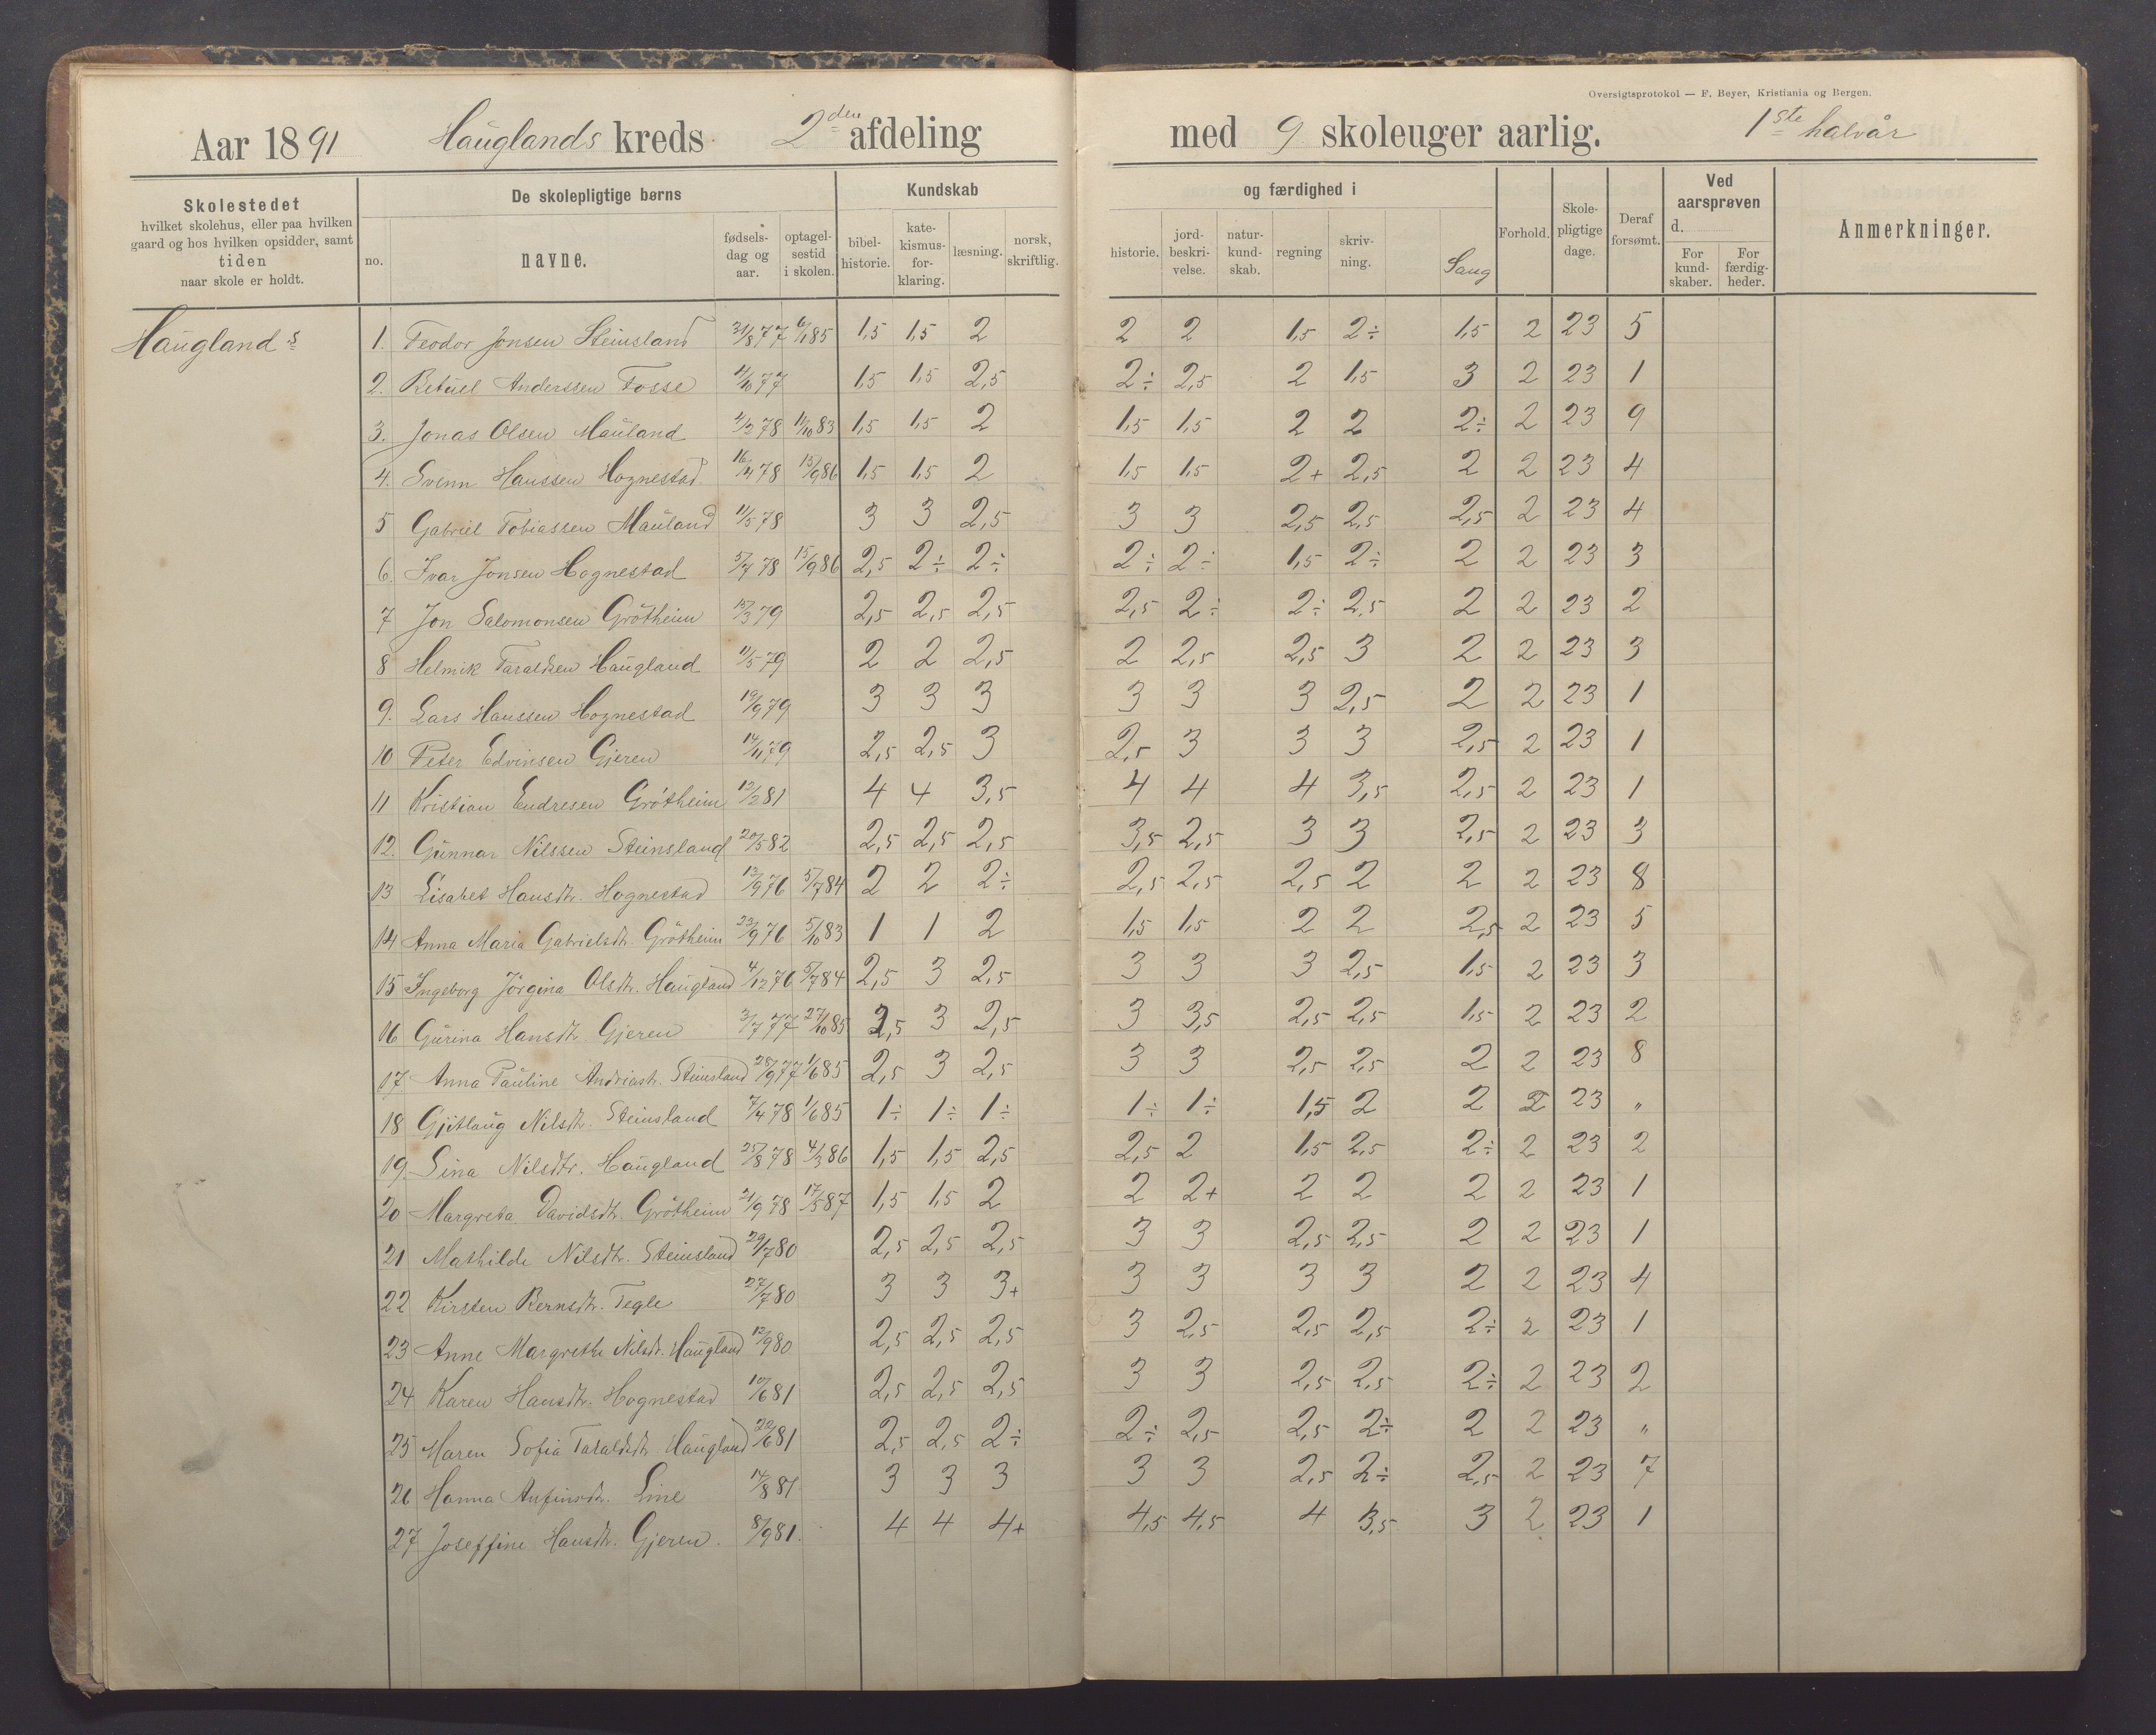 Oversigtsprotokol — F. Beyer, Kristiania og Bergen.
Aar 1891 Hauglands kreds 2den afdeling med 9 skoleuger aarlig. 1ste halvår
Skolestedet
hvilket skolehus, eller paa hvilken
gaard og hos hvilken opsidder, samt
tiden
naar skole er holdt.
De skolepligtige børns
no.
navne.
fødsels-
dag og
aar.
optagel-
sestid
i skolen.
Kundskab
bibel-
historie.
kate-
kismus-
for-
klaring.
læsning.
norsk,
skriftlig.
og færdighed i
historie.
jord-
beskri-
velse.
natur-
kund-
skab.
regning
skriv-
ning.
Sang
Forhold.
Skole-
pligtige
dage.
Deraf
forsømt.
Ved
aarsprøven
d.
For
kund-
skaber.
For
færdig-
heder.
Anmerkninger.
Hauglands
1. Teodor Jonsen Steinsland 31/8 77 6/1 85 1,5 1,5 2 2 2 1,5 2÷ 1,5 2 23 5
2. Betuel Anderssen Fosse 4/10 77 1,5 1,5 2,5 2÷ 2,5 2 1,5 3 2 23 1
3. Jonas Olsen Mauland 4/2 78 11/10 83 1,5 1,5 2 1,5 1,5 2 2 2÷ 2 23 9
4. Svenn Hanssen Hognestad 16/4 78 15/9 86 1,5 1,5 2 1,5 1,5 2+ 2,5 2 2 23 4
5 Gabriel Tobiassen Mauland 11/5 78 3 3 2,5 3 3 2,5 2,5 2,5 2 23 4
6. Ivar Jonsen Hognestad 5/7 78 15/9 86 2,5 2÷ 2÷ 2÷ 2÷ 1,5 2÷ 2 2 23 3
7 Jon Salomonsen Grötheim 15/3 79 2,5 2,5 2,5 2,5 2÷ 2÷ 2,5 2 2 23 2
8 Helmik Taraldsen Haugland 11/5 79 2 2 2,5 2 2,5 2,5 3 2 2 23 3
9. Lars Hanssen Hognestad 19/9 79 3 3 3 3 3 3 2,5 2 2 23 1
10 Peter Edvinsen Gjeren 14/11 79 2,5 2,5 3 2,5 3 3 3 2,5 2 23 1
11 Kristian Endresen Grötheim 12/2 81 4 4 3,5 4 4 4 3,5 2,5 2 23 1
12. Gunnar Nilssen Steinsland 20/5 82 2,5 2,5 2,5 3,5 2,5 3 3 2,5 2 23 3
13 Lisabet Hansdtr. Hognestad 13/9 76 5/7 84 2 2 2÷ 2,5 2,5 2,5 2 2 2 23 8
14 Anna Maria Gabrielsdtr. Grötheim 23/9 76 5/10 83 1 1 2 1,5 1,5 2 2 2,5 2 23 5
15 Ingeborg Jörgina Olsdtr. Haugland 4/12 76 5/7 84 2,5 3 2,5 3 3 3 2,5 1,5 2 23 3
16 Gurina Hansdtr Gjeren 3/7 77 27/10 85 2,5 3 2,5 3 3,5 2,5 2,5 1,5 2 23 2
17. Anna Pauline Andriasdtr. Steinsland 28/9 77 1/6 85 2,5 3 2,5 3 3 2,5 2,5 2 2 23 8
18 Gjitlaug Nilsdtr. Steinsland 7/4 78 1/6 85 1÷ 1÷ 1÷ 1÷ 1÷ 1,5 2 2 2 23 "
19. Lina Nilsdtr. Haugland 25/8 78 4/3 86 1,5 1,5 2,5 2,5 2 1,5 2,5 2÷ 2 23 2
20 Margreta Davidsdtr. Grötheim 21/9 78 17/5 87 1,5 1,5 2 2 2+ 2 2 2 2 23 1
21 Mathilde Nilsdtr. Steinsland 29/7 80 2,5 2,5 2,5 3 3 2,5 2,5 2 2 23 1
22 Kirsten Bernsdtr. Tegle 27/7 80 3 3 3+ 3 3 3 3 2 2 23 4
23 Anne Margrethe Nilsdtr. Haugland 12/9 80 2,5 2,5 2,5 3 2,5 2,5 2,5 2÷ 2 23 1
24 Karen Hansdtr. Hognestad 10/6 81 2,5 2,5 2,5 3 3 2,5 2,5 2÷ 2 23 2
25 Maren Sofia Taraldsdtr. Haugland 20/6 81 2,5 2,5 2÷ 2÷ 2,5 2,5 2÷ 2 2 23 "
26 Hanna Anfinsdtr. Line 14/8 81. 3 3 3 3 3 2,5 2÷ 2,5 2 23 7
27 Joseffine Hansdtr. Gjeren. 8/9 81. 4 4 4+ 4,5 4,5 4 3,5 3 2 23 1